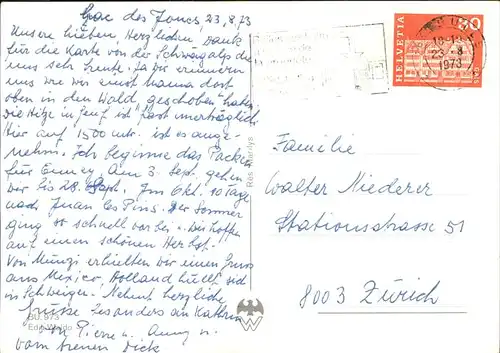 Lac des Joncs, 23.8.73
Unsere lieben, Herzlichen Dank
für die Karte von der Schwägalp die
uns sehr freute. Ja wir erinnern
uns wie wir einst Mama dort
oben in den Wald "geschoben" haben.
die Hitze in Genf ist fast unerträglich.
Hier auf 1500 mtr. ist es ange-
nehm. Ich beginne das Packen
für Am 3. Sept. gehen
wir bis 28. Sept. Im Okt. 10 Tage
nach Juan les Pins. Der Sommer
ging so schnell vorbei. Wir hoffen
auf einen schönen Herbst.
Von Münzi erhielten wir einen Gruss
aus Mexico, Holland hüllt sich
in Schweigen. Nehmt herzliche
Grüsse besonders an Kathrin
von Pierre u. Anny u.
vom treuen Dick
BU. 973
Res Mandys
HELVETIA
30
23.-8
1973
Familie
Walter Niederer
Stationsstrasse 51
8003 Zürich